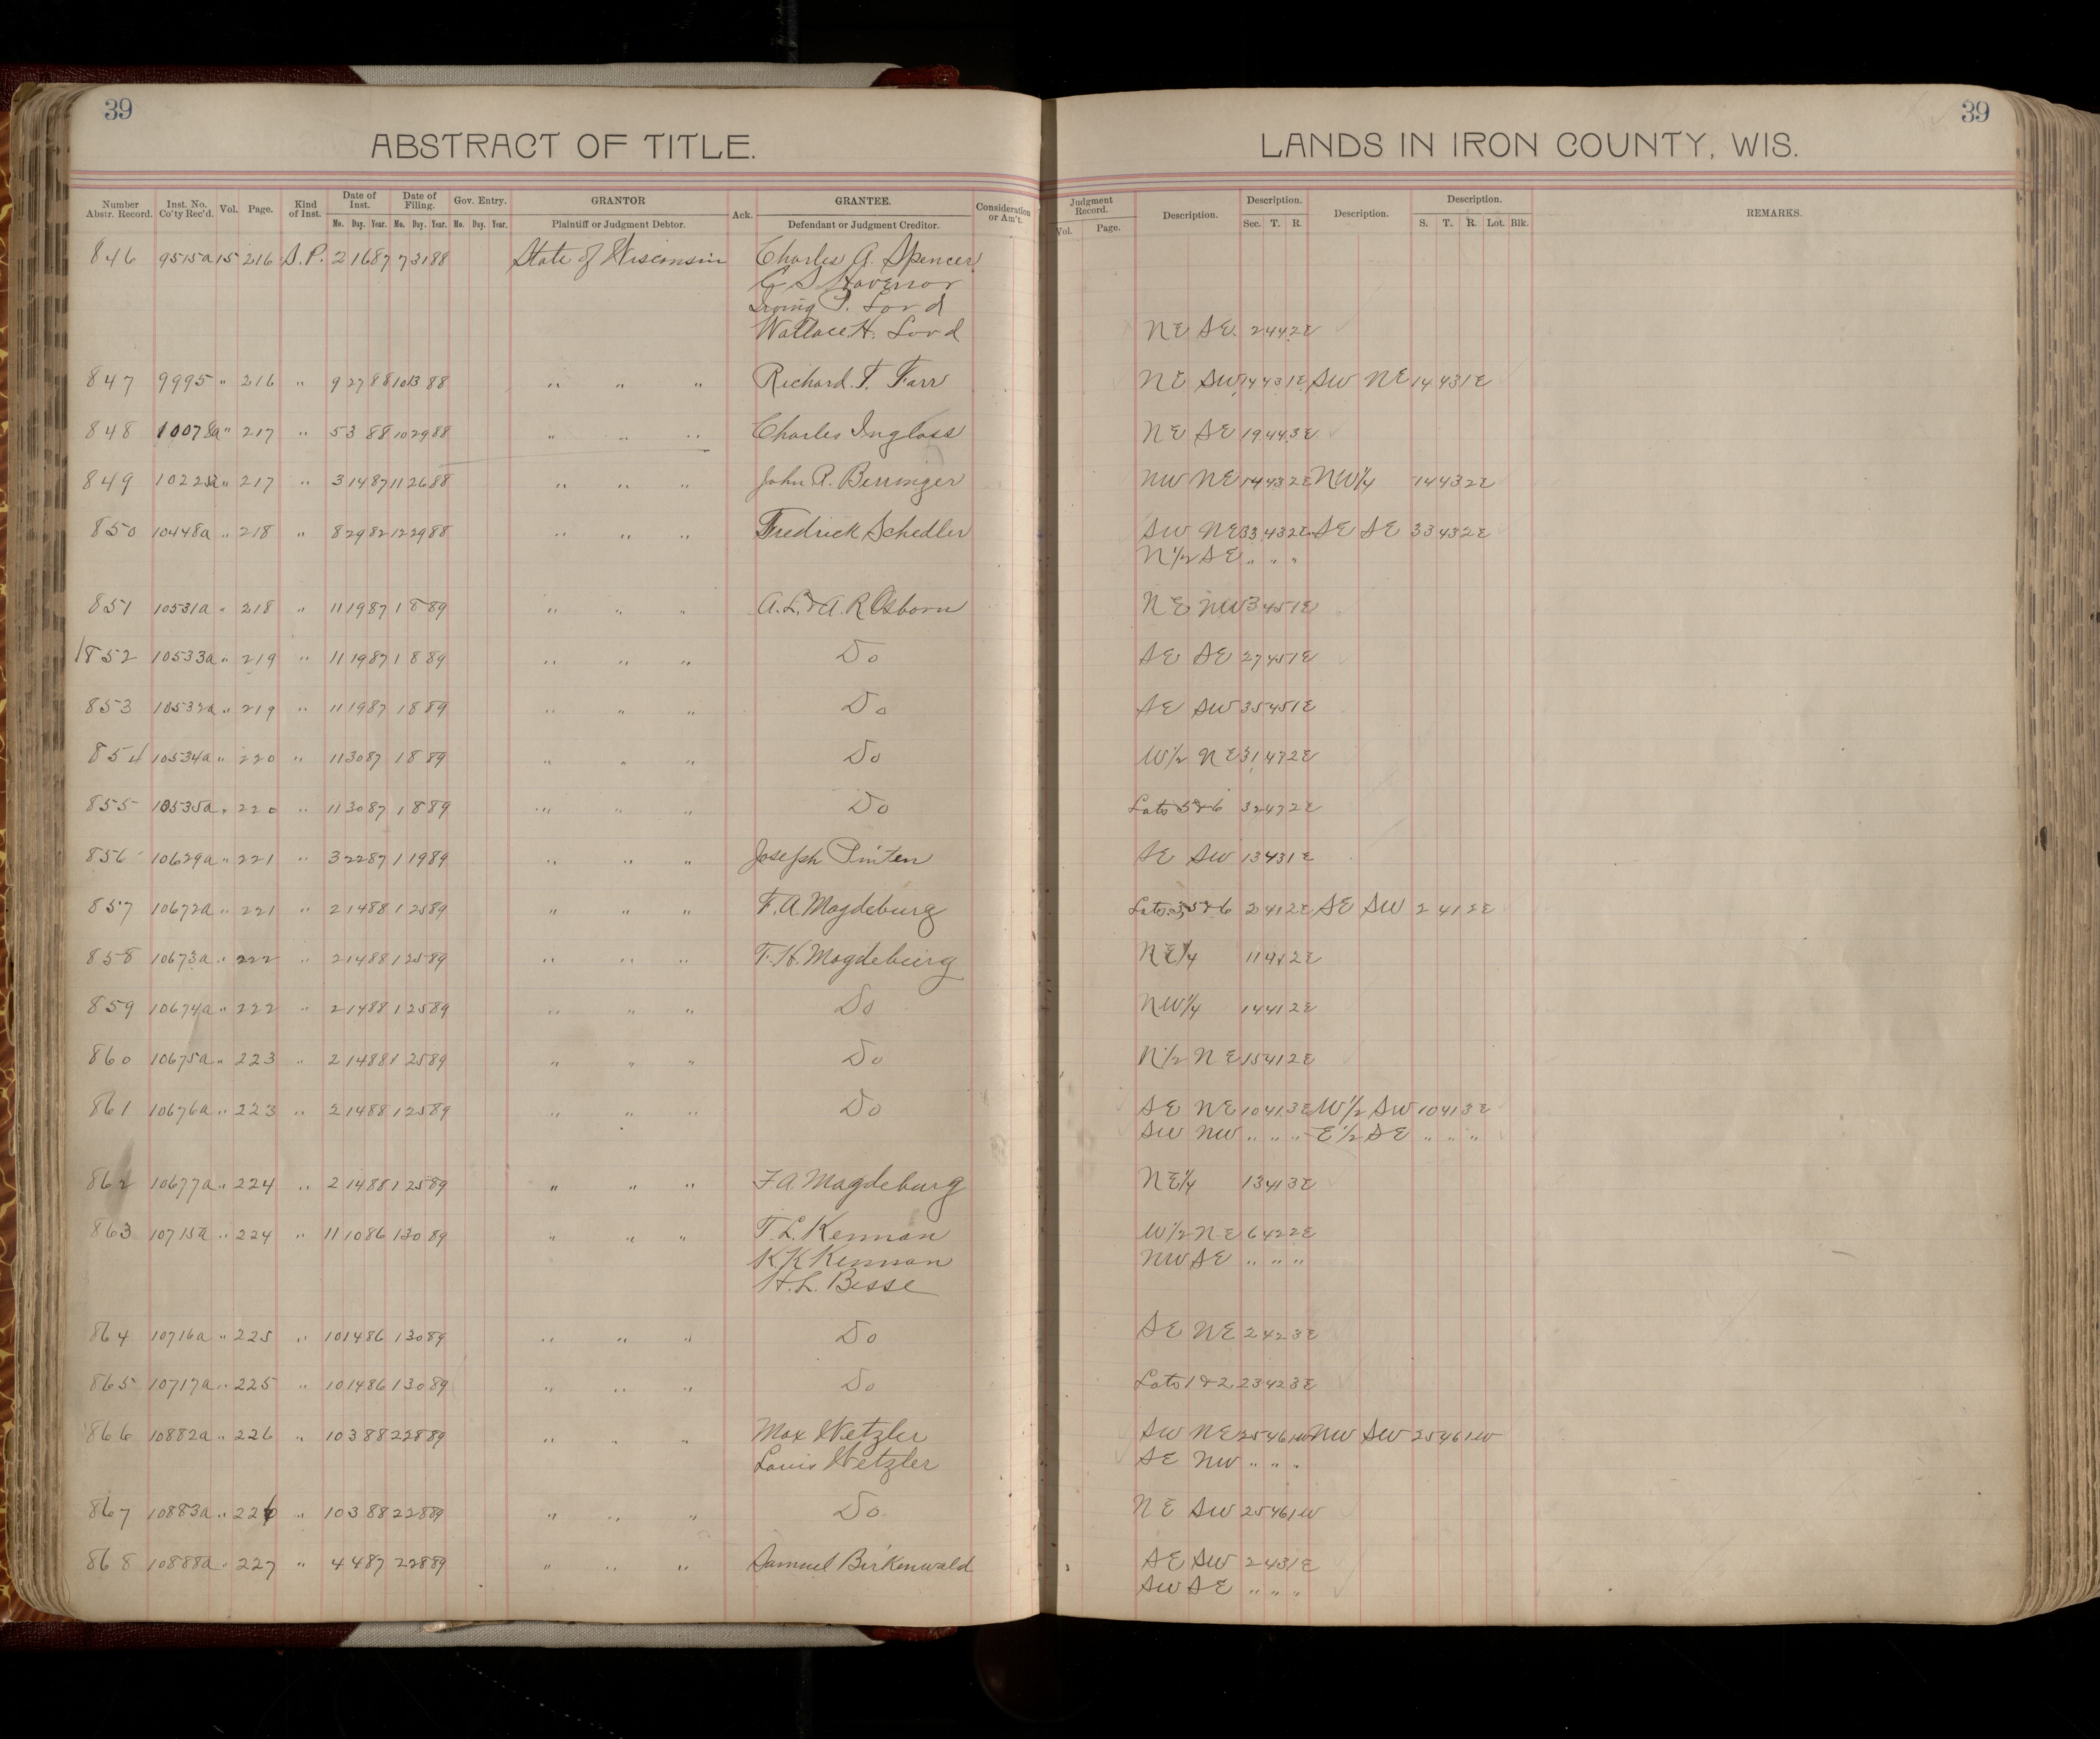 39
ABSTRACT OF TITLE.
Number Abstr. Record. Inst. No. Co'ty Rec'd. Vol. Page. Kind of Inst. Date of Inst. Date of Filing. Gov. Entry. GRANTOR Ack. GRANTEE. Consideration or Am't.
Mo. Day. Year. Mo. Day. Year. Mo. Day. Year. Plaintiff or Judgment Debtor. Defendant or Judgment Creditor.
846 9515a 15 216 S.P. 2 16 87 7 31 88 State of Wisconsin Charles A. Spencer
Irving P. Lord
Wallace H. Lord
847 9995 " 216 " 9 27 88 10 13 88 " " " Richard T. Farr
848 10078a " 217 " 5 3 88 10 29 88 " " " Charles Inglass
849 10225a " 217 " 3 14 87 11 26 88 " " " John R. Berringer
850 10448a " 218 " 8 29 82 12 29 88 " " " Fredrick Schedler
851 10531a " 218 " 11 19 87 1 8 89 " " " A. L. & A. R Osborn
852 10533a " 219 " 11 19 87 1 8 89 " " " Do
853 10532a " 219 " 11 19 87 1 8 89 " " " Do
854 10534a " 220 " 11 30 87 1 8 89 " " " Do
855 10535a " 220 " 11 30 87 1 8 89 " " " Do
856 10629a " 221 " 3 22 87 1 19 89 " " " Joseph Pinten
857 10672a " 221 " 2 14 88 1 25 89 " " " F. A. Magdeburg
858 10673a " 222 " 2 14 88 1 25 89 " " " F. H. Magdeburg
859 10674a " 222 " 2 14 88 1 25 89 " " " Do
860 10675a " 223 " 2 14 88 1 25 89 " " " Do
861 10676a " 223 " 2 14 88 1 25 89 " " " Do
862 10677a " 224 " 2 14 88 1 25 89 " " " F A. Magdeburg
863 10715a " 224 " 11 10 86 1 30 89 " " " T. L. Kennan
K. K Kennan
H. L. Besse
864 10716a " 225 " 10 14 86 1 30 89 " " " Do
865 10717a " 225 " 10 14 86 1 30 89 " " " Do
866 10882a " 226 " 10 3 88 2 28 89 " " " Max Wetzler
Louis Wetzler
867 10883a " 226 " 10 3 88 2 28 89 " " " Do
868 10888a " 227 " 4 4 87 2 28 89 " " " Samuel Birkenwald
39
LANDS IN IRON COUNTY, WIS.
Judgment Record. Description. Description. Description. Description. REMARKS.
Vol. Page. Sec. T. R. S. T. R. Lot. Blk.
NE SE. 2 44 2E
NE SW 14 43 1E SW NE 14 43 1E
NE SE 19 44 3E
NW NE 14 43 2E NW1/4 14 43 2E
SW NE 33 43 2E SE SE 33 43 2E
N1/2 SE " " "
NE NW 3 45 1E
SE SE 27 45 1E
SE SW 35 45 1E
W1/2 NE 31 47 2E
Lots 5&6 32 47 2E
SE SW 13 43 1E
Lots 3,5&6 2 41 2E SE SW 2 41 2E
NE1/4 11 41 2E
NW1/4 14 41 2E
N1/2 NE 15 41 2E
SE NE 10 41 3E W1/2 SW 10 41 3E
SW NW " " " E1/2 SE " " "
NE1/4 13 41 3E
W1/2 NE 6 42 2E
NW SE " " "
SE NE 2 42 3E
Lots 1&2 23 42 3E
SW NE 25 46 1W NW SW 25 46 1W
SE NW " " "
NE SW 25 46 1W
SE SW 2 43 1E
SW SE " " "